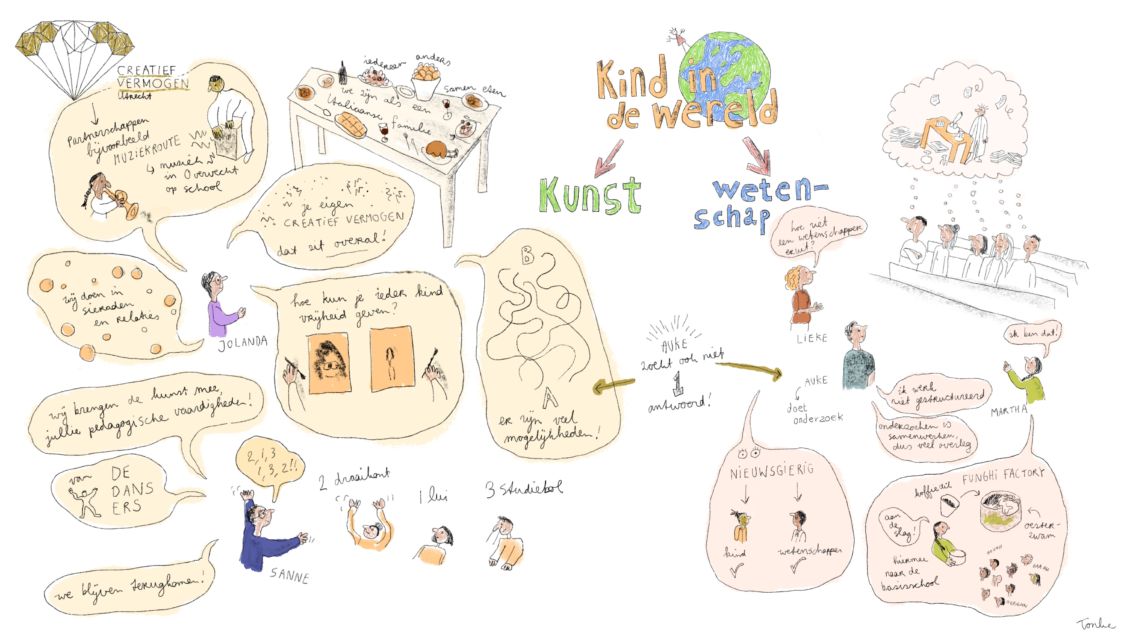 CREATIEF
VERMOGEN
Utrecht
Partnerschappen
bijvoorbeeld
MUZIEKROUTE
↳ muziek
in Overvecht
op school
iedereen anders
samen eten
we zijn als een
Italiaanse familie
je eigen
CREATIEF VERMOGEN
dat zit overal!
wij doen in
sieraden
en relaties
JOLANDA
hoe kun je ieder kind
vrijheid geven?
B
A
er zijn veel
mogelijkheden!
wij brengen de kunst mee,
jullie pedagogische vaardigheden!
van
DE
DANS
ERS
2, 1, 3
1, 3, 2!!
SANNE
2 draaikont
1 lui
3 studiebol
we blijven terugkomen!
Kind in
de wereld
Kunst
weten-
schap
AUKE
zocht ook niet
1
antwoord!
hoe ziet
een wetenschapper
eruit?
LIEKE
AUKE
doet
onderzoek
ik werk
niet gestructureerd
onderzoeken is
samenwerken,
dus veel overleg
ik ben dat!
MARTHA
NIEUWSGIERIG
kind
wetenschapper
FUNGHI FACTORY
koffiedik
oester-
zwam
aan
de
slag!
hiermee
naar de
basisschool
Tonke